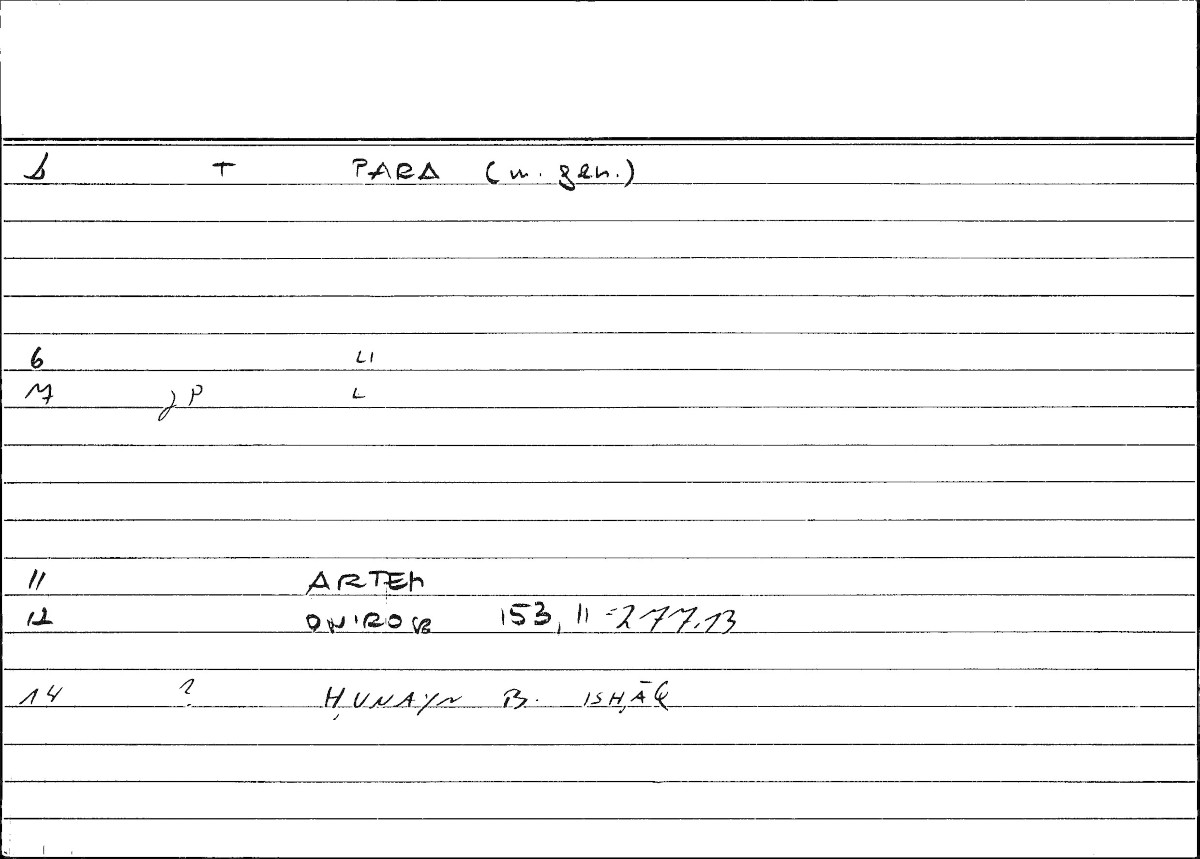 T PARA (m. gen.)
6 LI
7 P L
11 ARTEM
12 ONIROCR 153, 11 = 277.13
14 ? ḤUNAYN B. ISḤĀQ